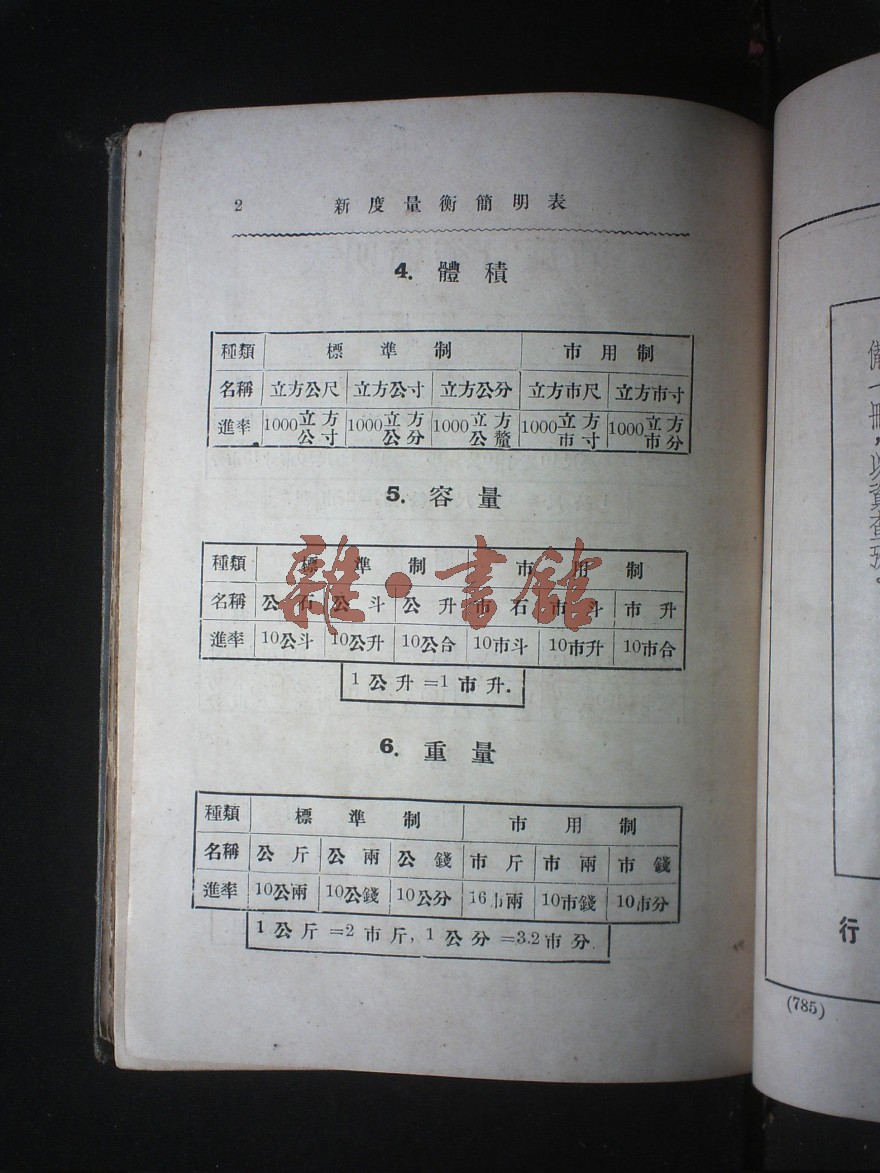 2 新度量衡簡明表
4. 體積
種類 標準制 市用制
名稱 立方公尺 立方公寸 立方公分 立方市尺 立方市寸
進率 1000立方公寸 1000立方公分 1000立方公釐 1000立方市寸 1000立方市分
5. 容量
種類 標準制 市用制
名稱 公石 公斗 公升 市石 市斗 市升
進率 10公斗 10公升 10公合 10市斗 10市升 10市合
1公升=1市升.
6. 重量
種類 標準制 市用制
名稱 公斤 公兩 公錢 市斤 市兩 市錢
進率 10公兩 10公錢 10公分 16市兩 10市錢 10市分
1公斤=2市斤, 1公分=3.2市分.
雜·書館
備一冊,以資查
行
(785)